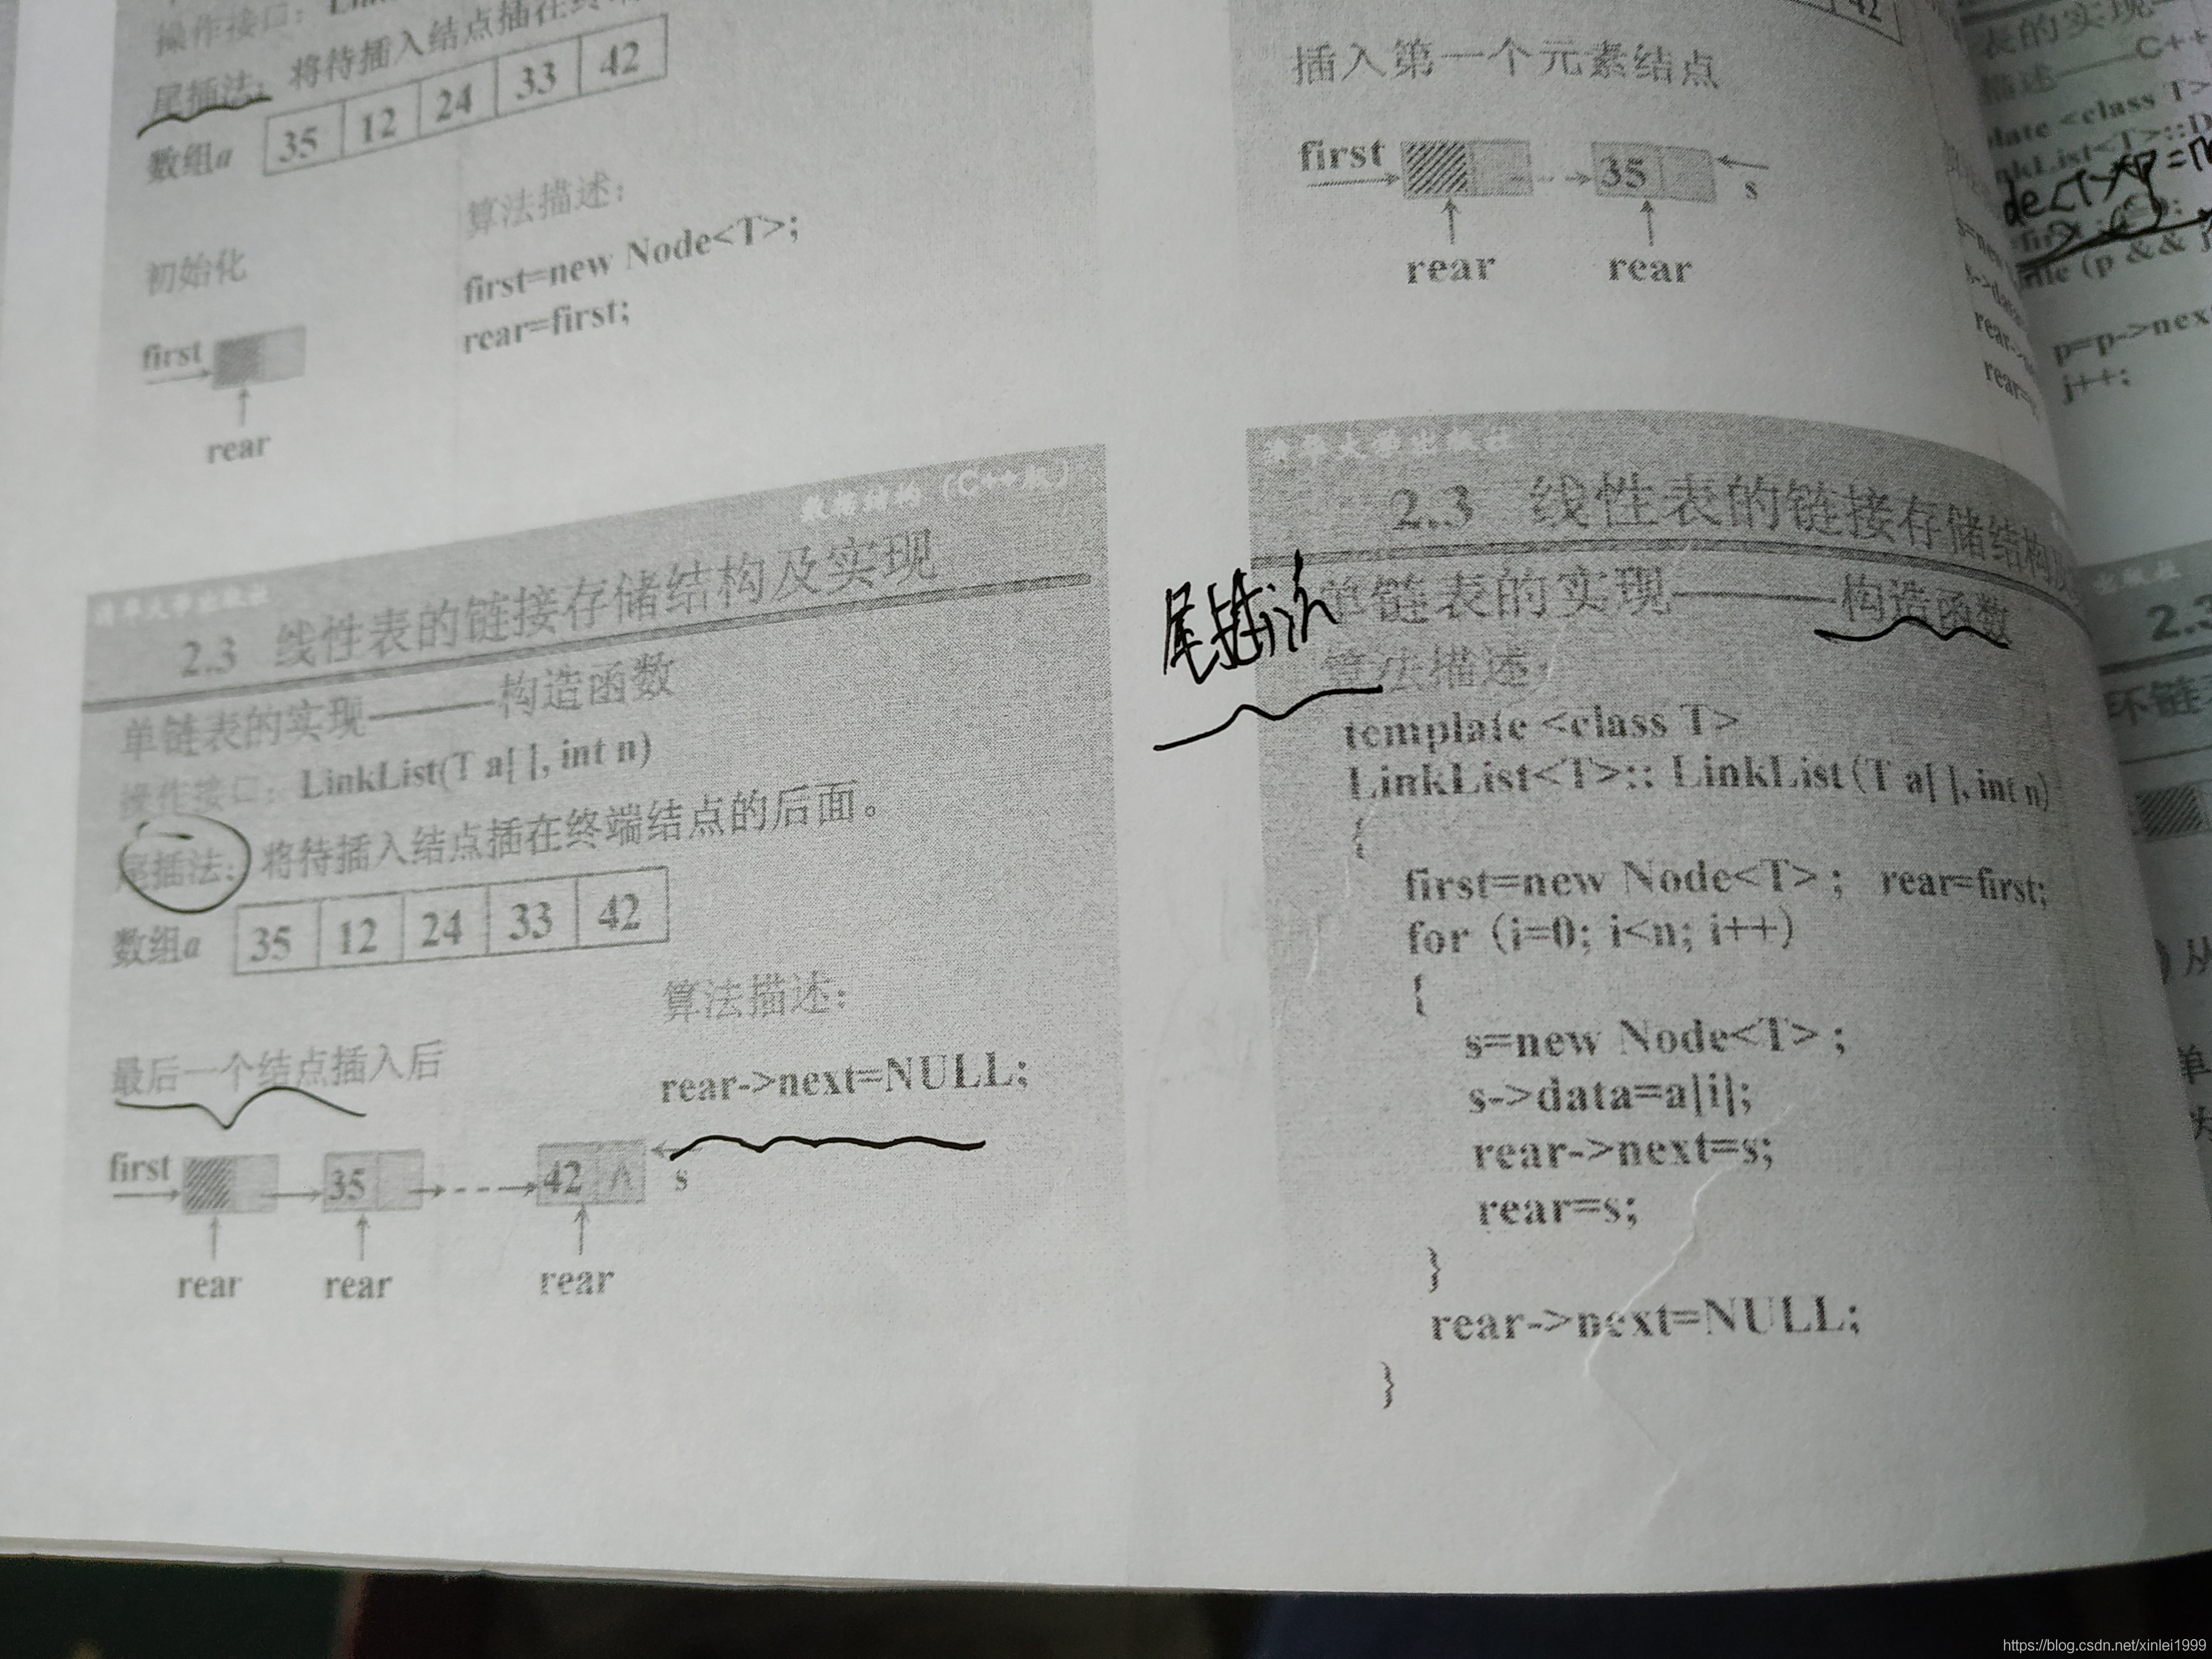 操作接口：
尾插法：将待插入结点插在终端
数组a 35 12 24 33 42
算法描述：
初始化
first=new Node<T>;
rear=first;
first
rear
42
插入第一个元素结点
first 35 s
rear rear
清华大学出版社
数据结构（C++版）
2.3 线性表的链接存储结构及实现
单链表的实现———构造函数
操作接口：LinkList(T a[ ], int n)
尾插法：将待插入结点插在终端结点的后面。
数组a 35 12 24 33 42
算法描述：
最后一个结点插入后
rear->next=NULL;
first 35 42 ∧ s
rear rear rear
清华大学出版社
2.3 线性表的链接存储结构及
尾插法
单链表的实现———构造函数
算法描述：
template <class T>
LinkList<T>:: LinkList(T a[ ], int n)
{
first=new Node<T>; rear=first;
for (i=0; i<n; i++)
{
s=new Node<T>;
s->data=a[i];
rear->next=s;
rear=s;
}
rear->next=NULL;
}
表的实现
描述——C++
late <class T>
nkList<T>::D
de<T>*p=n
while (p &&
p=p->nex
j++;
s=new
s->data
rear->
rear=
出版社
2.3
环链
从
单
https://blog.csdn.net/xinlei1999